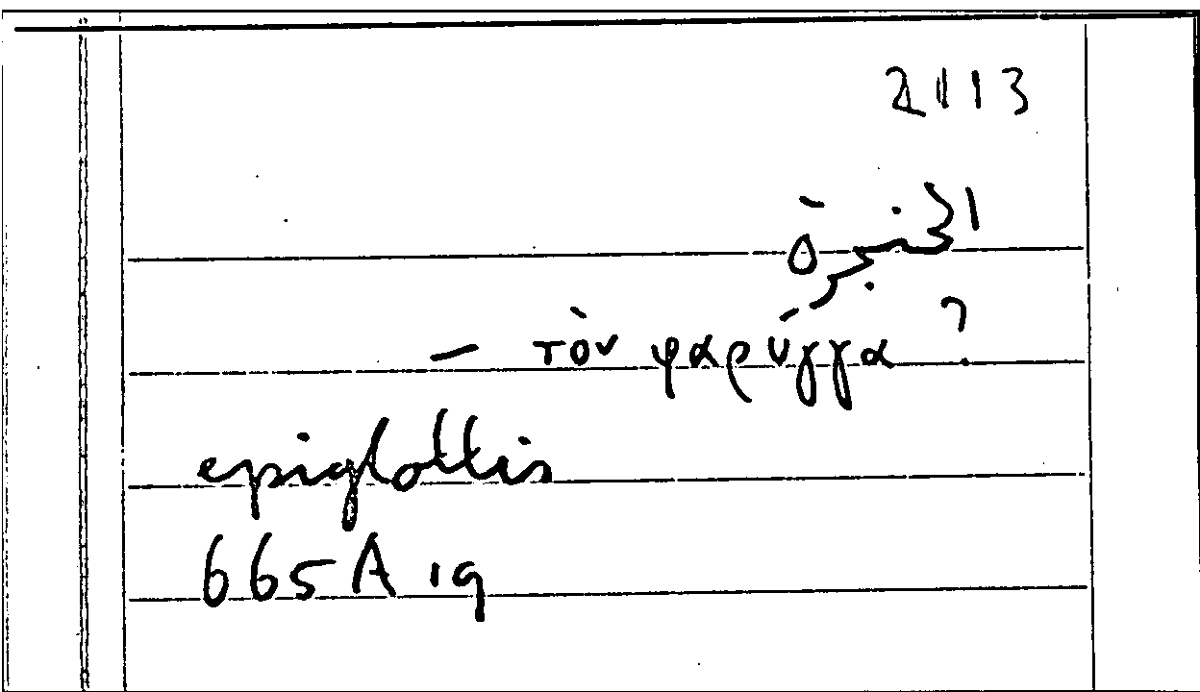 2113
الحنجرة
— τὸν φαρύγγα ?
epiglottis
665A 19